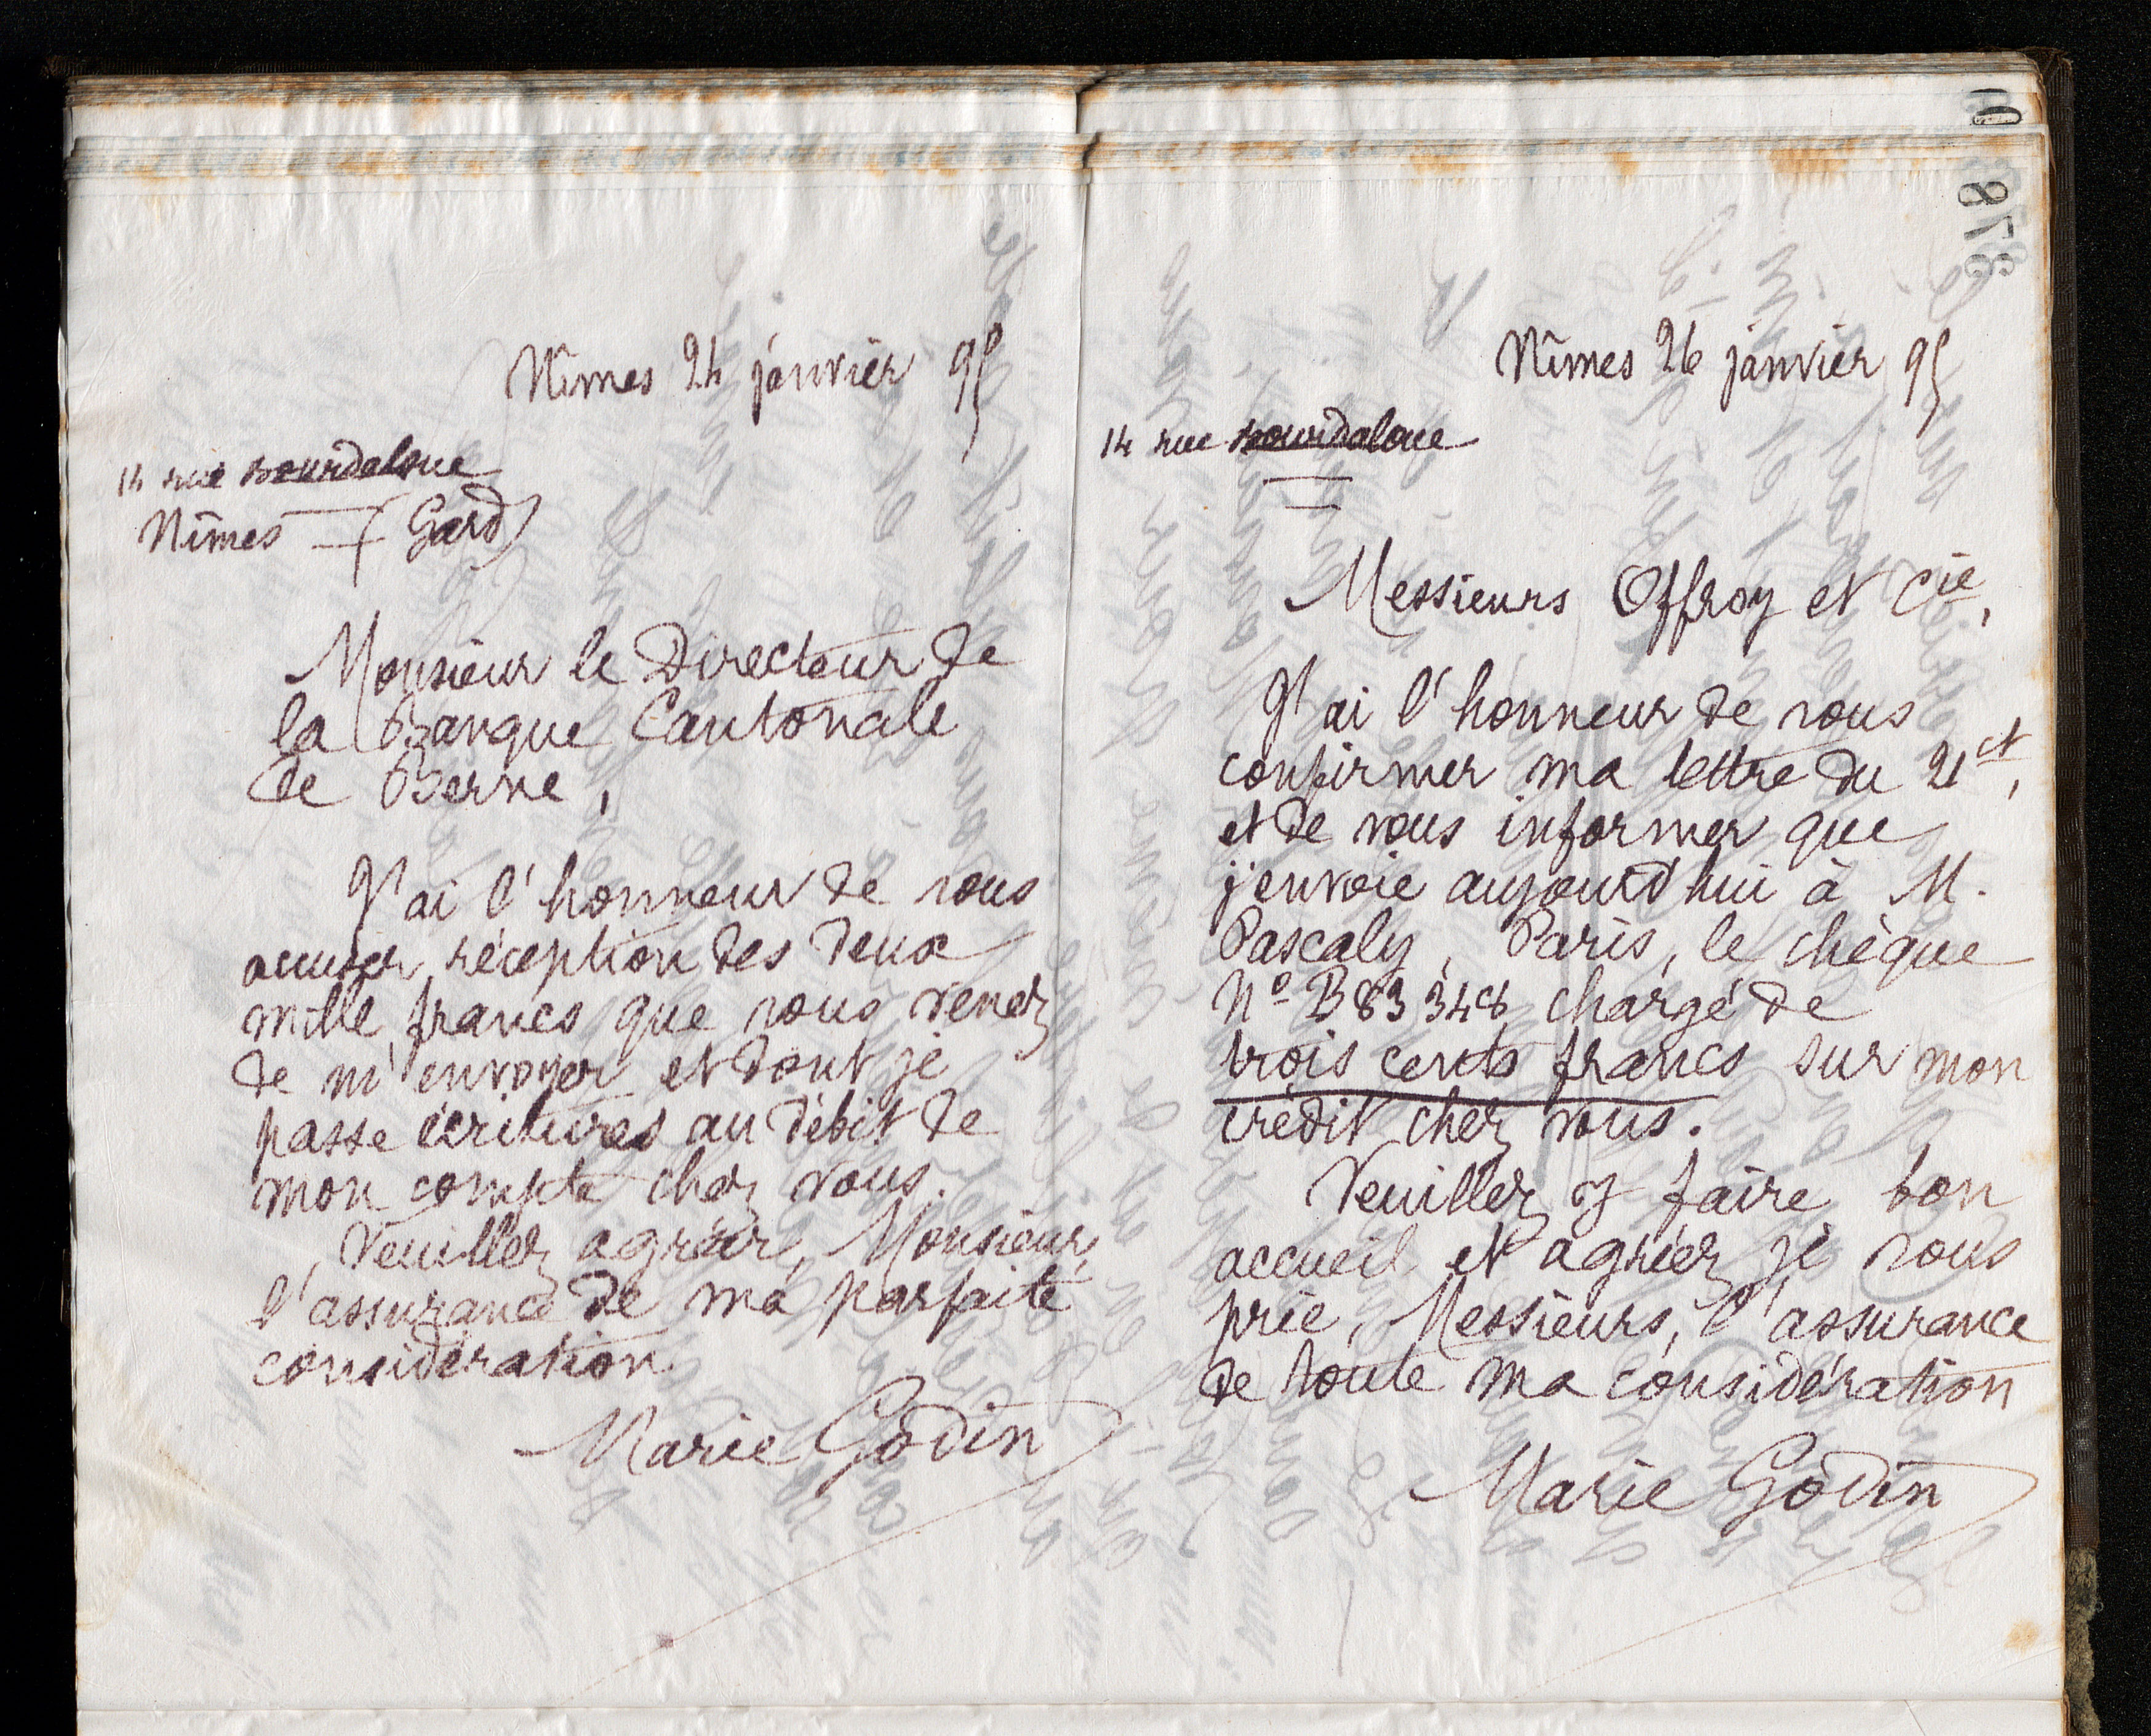 Nîmes 24 janvier 95
14 rue Bourdaloue
Nîmes (Gard)
Monsieur le Directeur de
la Banque Cantonale
de Berne,
J'ai l'honneur de vous
accuser réception des deux
mille francs que vous venez
de m'envoyer et dont je
passe écritures au débit de
mon compte chez vous.
Veuillez agréer, Monsieur,
l'assurance de ma parfaite
considération
Marie Godin
878
Nîmes 26 janvier 95
14 rue Bourdaloue
Messieurs Offroy et Cie,
J'ai l'honneur de vous
confirmer ma lettre du 21 ct,
et de vous informer que
j'envoie aujourd'hui à M.
Pascaly, Paris, le chèque
No B 83 348, chargé de
trois cents francs sur mon
crédit chez vous.
Veuillez y faire bon
accueil et agréez, je vous
prie, Messieurs, l'assurance
de toute ma considération
Marie Godin